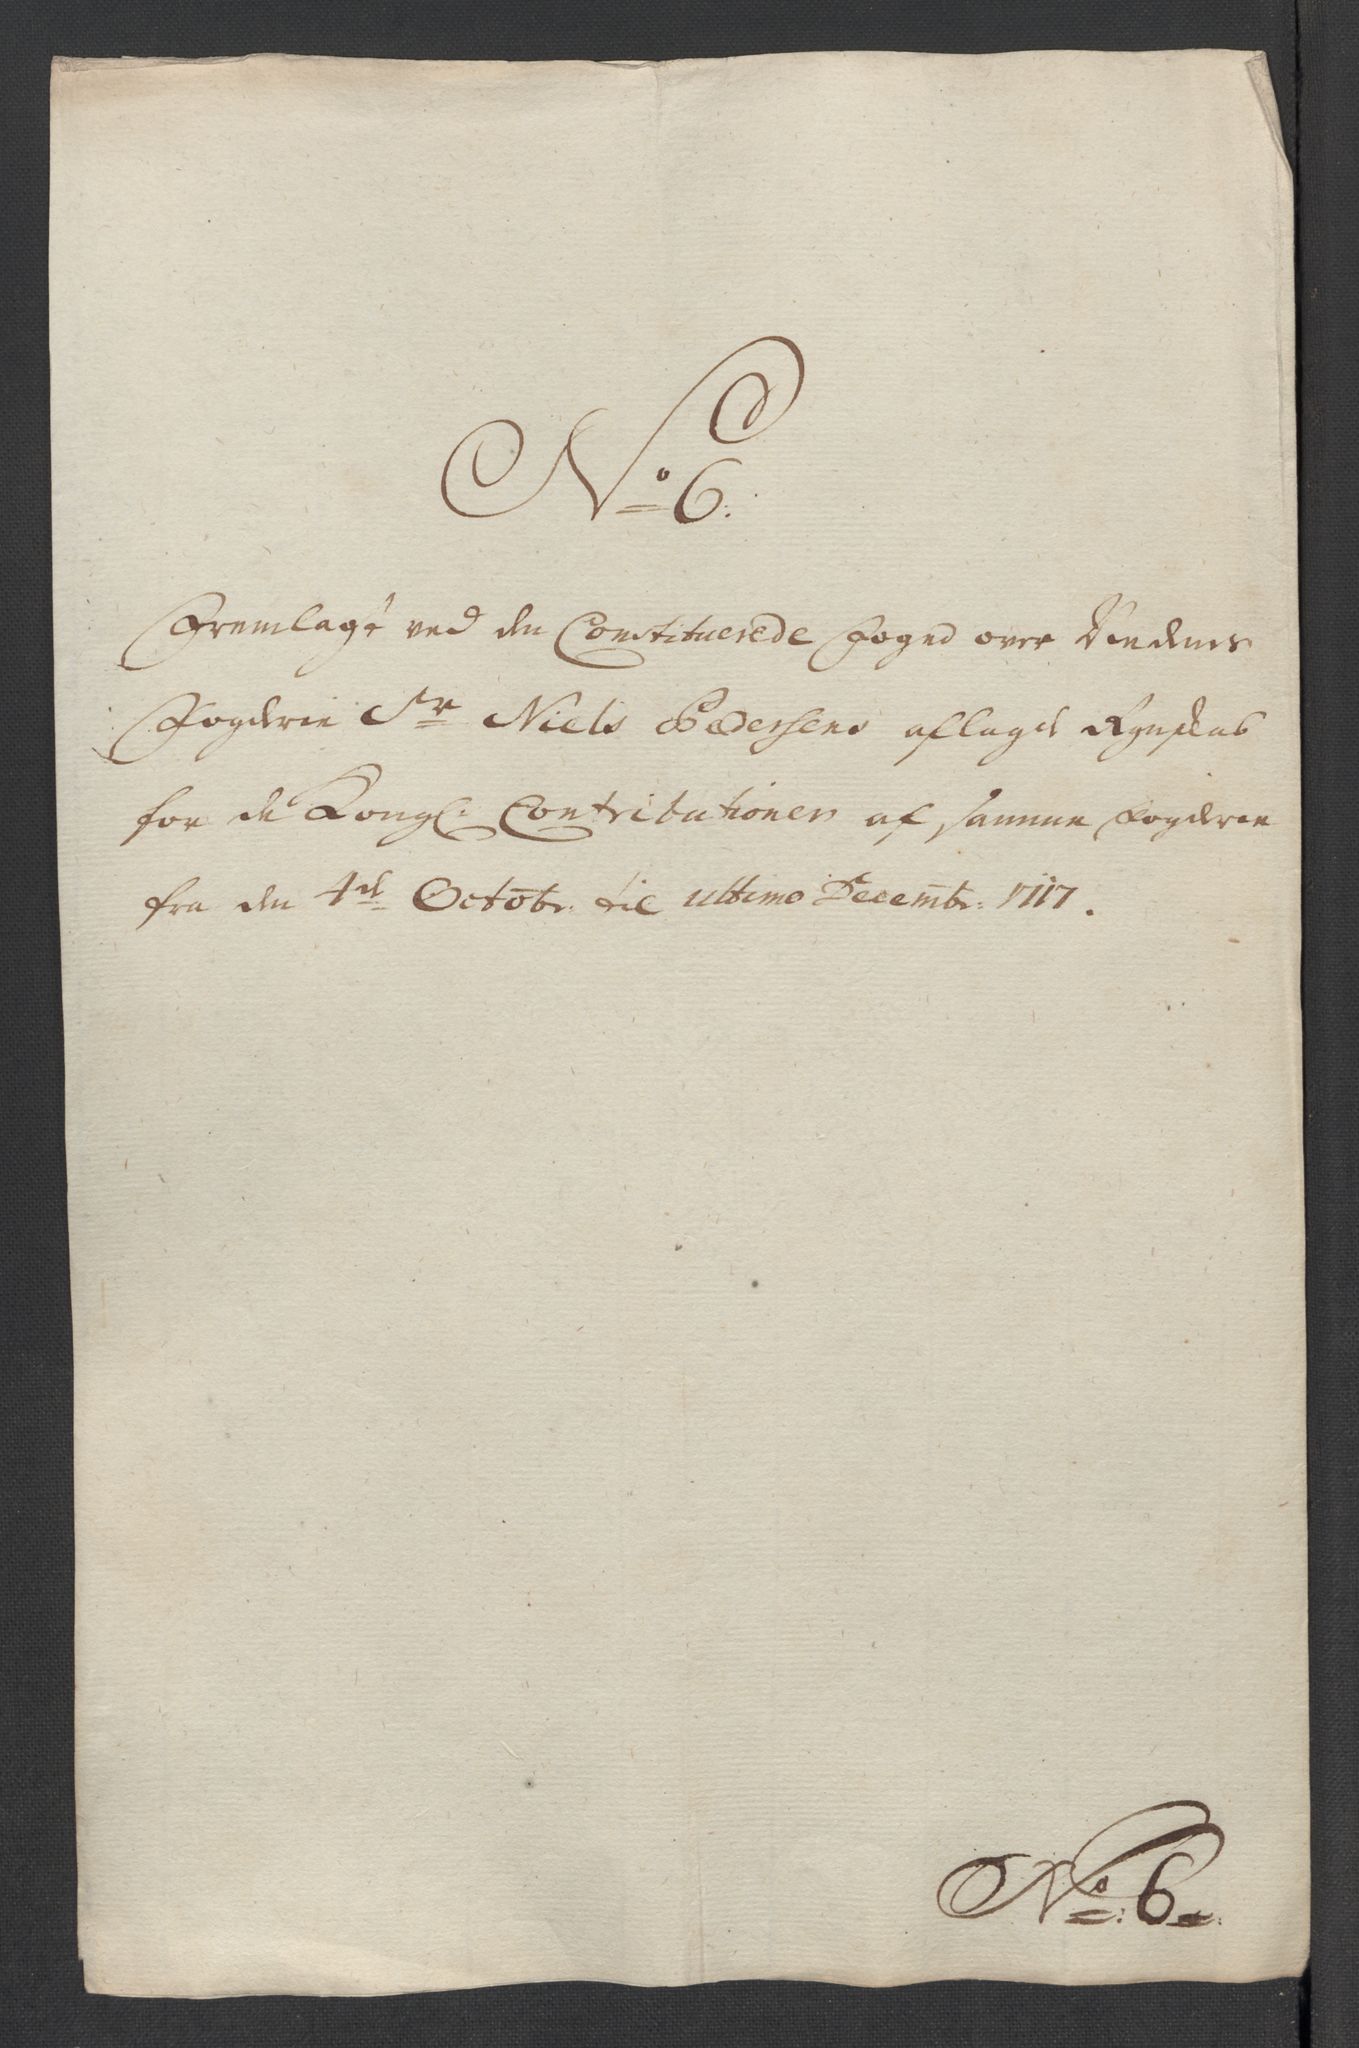 No 6.
Fremlagt ved den Constituerede Foged over
Fogderie Sr Niels Pedersens aflagde Regnskab
for de Kongl: Contributioner af samme Fogderie
fra den 4de Octobr: til ultimo Decembr: 1717.
No: 6